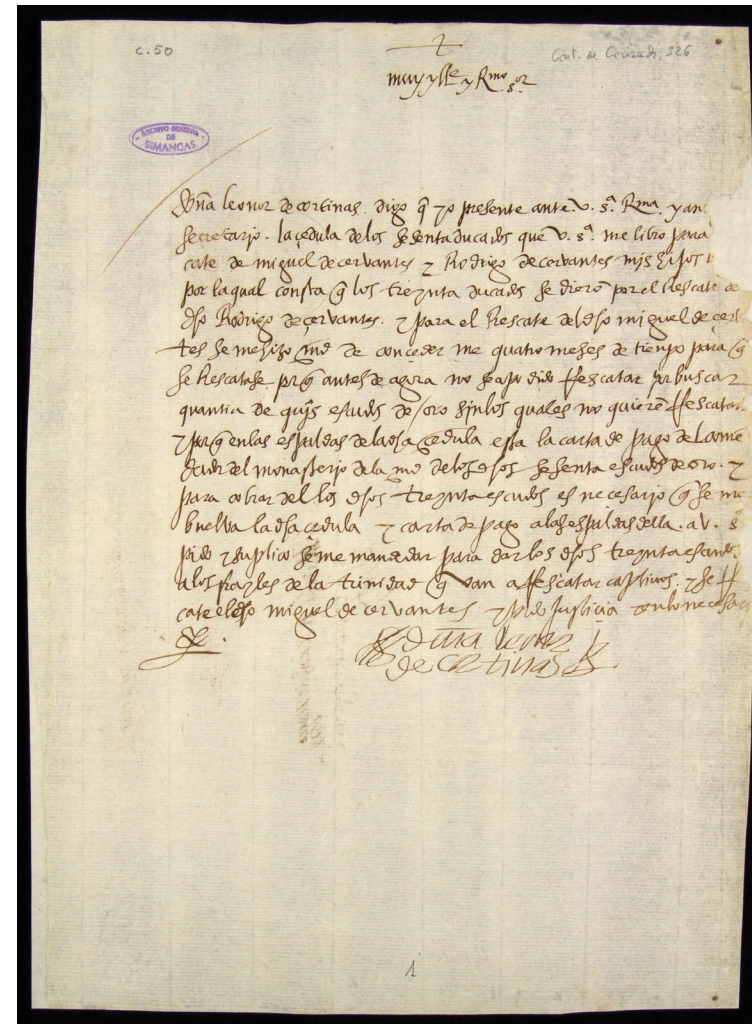 c. 50
Cont. de Cruzada, 326
muy ylle y Rmo sor
ARCHIVO GENERAL
DE
SIMANCAS
Doña leonor de cortinas. digo q̃ yo presente ante v. sª. Rma. y an
secretario. la cedula de los sesenta ducados que v. sª. me libro para
cate de miguel de cervantes y Rodrigo de cervantes mis hijos
por la qual consta q̃ los treynta ducados se dierõ por el Rescate de
dho Rodrigo de cervantes. y para el Rescate del dho miguel de cerv
tes se me hizo md de conceder me quatro meses de tienpo para q̃
se Rescatase porq̃ antes de agora no se a podido Rescatar por buscar
quantia de quis escudos de oro sin los quales no quierẽ Rescatar
y porq̃ en las espaldas de la dha cedula esta la carta de pago del come
dador del monasterio de la md de los dhos sesenta escudos de oro. y
para cobrar del los dhos treynta escudos es necesario q̃ se me
buelva la dha cedula y carta de pago a las espaldas della. a v. sª
pido y suplico se me mande dar para dar los dhos treynta escudos
a los frayles de la trinidad q̃ van a Rescatar captivos. y se R
cate el dho miguel de cervantes y pido justicia en lo necesar
doña leonor
de cortinas
1